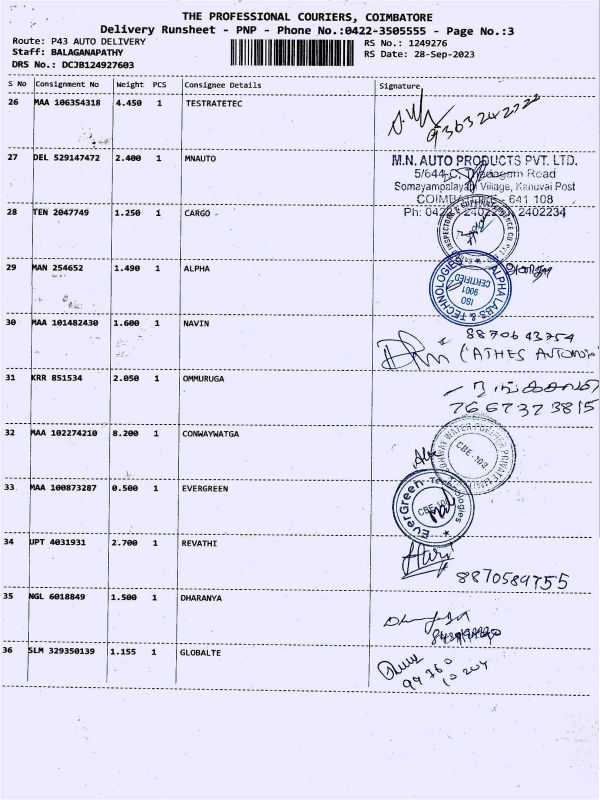 THE PROFESSIONAL COURIERS, COIMBATORE
Delivery Runsheet - PNP - Phone No.:0422-3505555 - Page No.:3
Route: P43 AUTO DELIVERY
RS No.: 1249276
Staff: BALAGANAPATHY
RS Date: 28-Sep-2023
DRS No.: DCJB124927603
S No Consignment No Weight PCS Consignee Details Signature
26 MAA 106354318 4.450 1 TESTRATETEC
27 DEL 529147472 2.400 1 MNAUTO
M.N. AUTO PRODUCTS PVT. LTD.
5/644-C, Thadagam Road
Somayampalayam Village, Kanuvai Post
COIMBATORE - 641 108
Ph: 0422 - 2402231, 2402234
28 TEN 2047749 1.250 1 CARGO -
29 MAN 254652 1.490 1 ALPHA
ALPHA LABS & TECHNOLOGIES
ISO
9001
CERTIFIED
30 MAA 101482430 1.600 1 NAVIN
8870643754
(ATHES
31 KRR 851534 2.050 1 OMMURUGA
7667323815
32 MAA 102274210 8.200 1 CONWAYWATGA
33 MAA 100873287 0.500 1 EVERGREEN
EverGreen Technologies
34 UPT 4031931 2.700 1 REVATHI
Hari
8870589755
35 NGL 6018849 1.500 1 DHARANYA
36 SLM 329350139 1.155 1 GLOBALTE
99760
10204